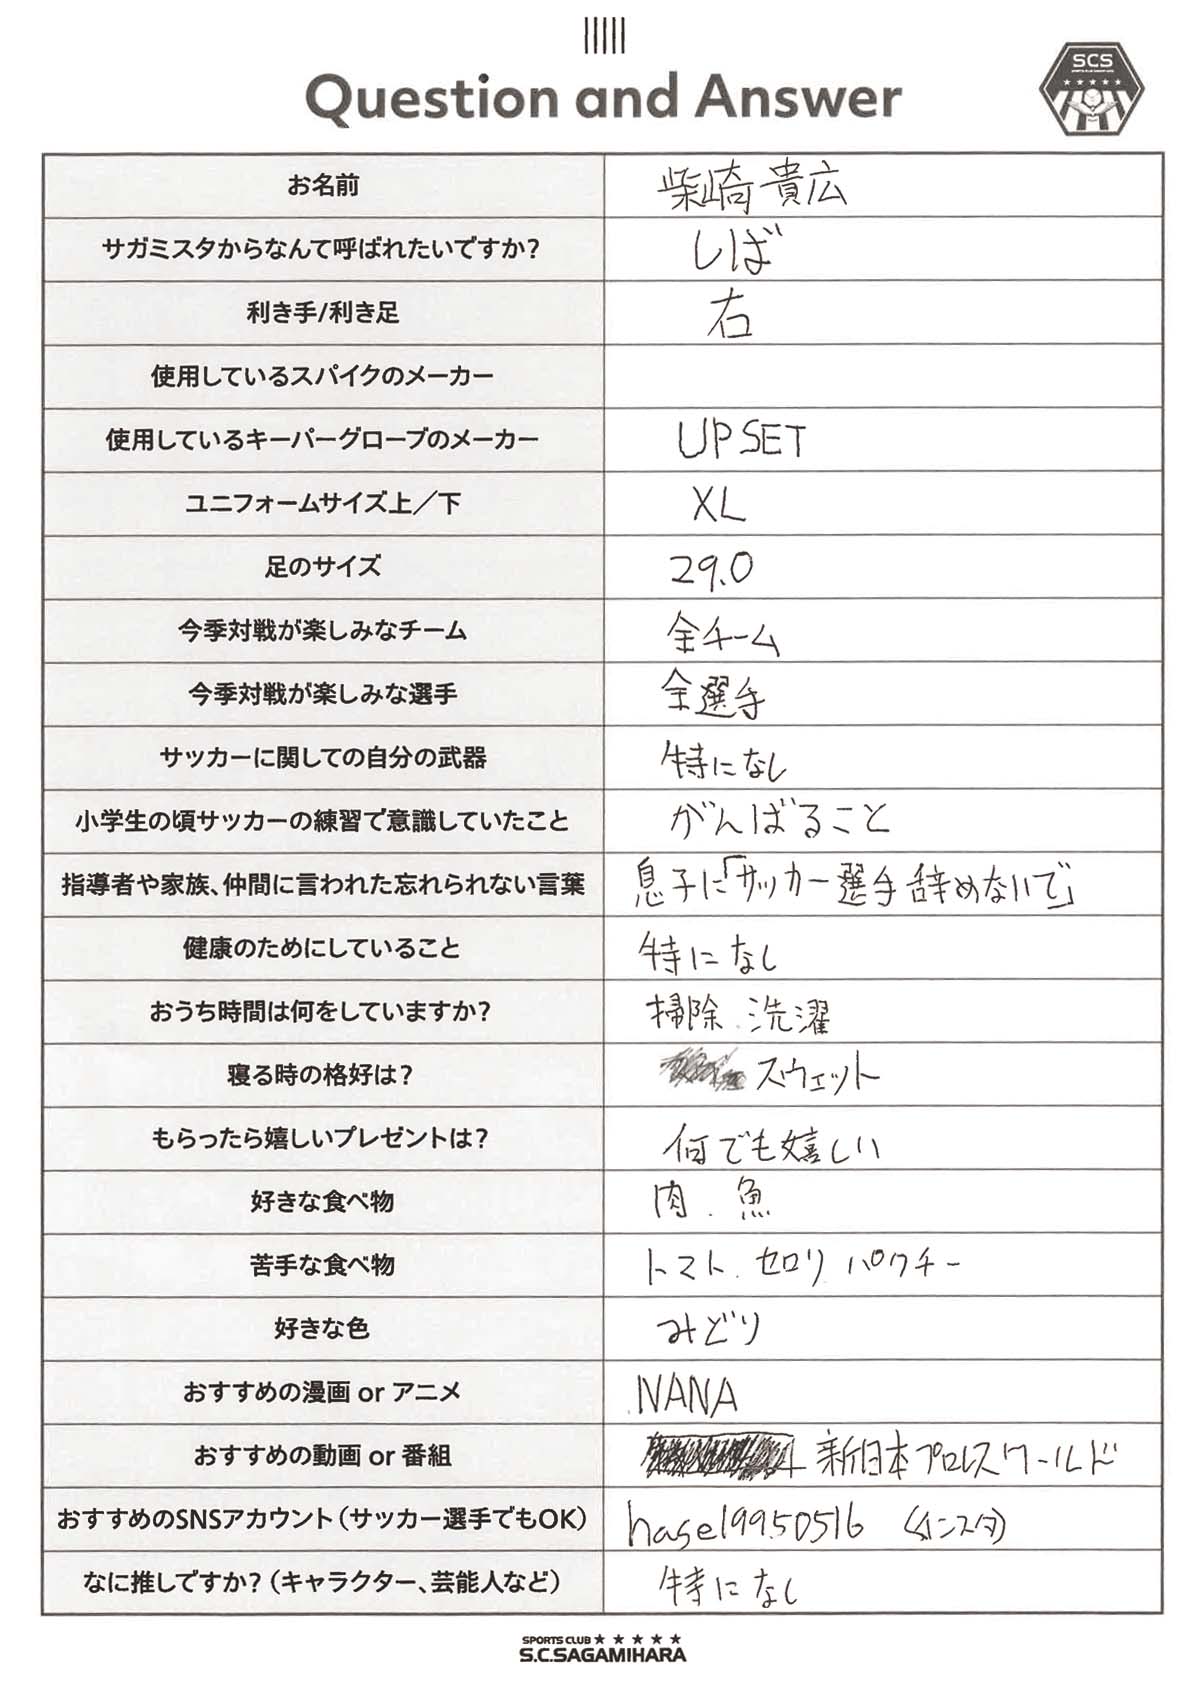 Question and Answer
SCS
お名前 柴崎貴広
サガミスタからなんて呼ばれたいですか? しば
利き手/利き足 右
使用しているスパイクのメーカー
使用しているキーパーグローブのメーカー UPSET
ユニフォームサイズ上／下 XL
足のサイズ 29.0
今季対戦が楽しみなチーム 全チーム
今季対戦が楽しみな選手 全選手
サッカーに関しての自分の武器 特になし
小学生の頃サッカーの練習で意識していたこと がんばること
指導者や家族、仲間に言われた忘れられない言葉 息子に「サッカー選手辞めないで」
健康のためにしていること 特になし
おうち時間は何をしていますか? 掃除.洗濯
寝る時の格好は? スウェット
もらったら嬉しいプレゼントは? 何でも嬉しい
好きな食べ物 肉.魚
苦手な食べ物 トマト.セロリ パクチー
好きな色 みどり
おすすめの漫画 or アニメ NANA
おすすめの動画 or 番組 新日本プロレスワールド
おすすめのSNSアカウント（サッカー選手でもOK） hase19950516 (インスタ)
なに推しですか?（キャラクター、芸能人など） 特になし
SPORTS CLUB ★ ★ ★ ★ ★
S.C.SAGAMIHARA